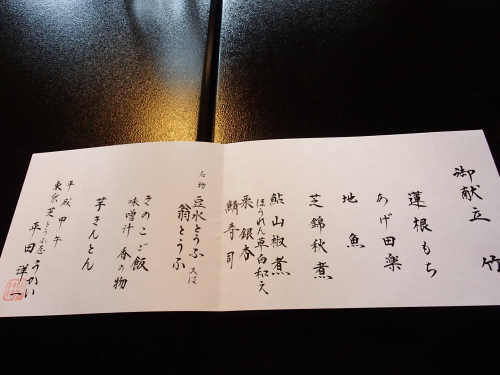 御献立　竹
蓮根もち
あげ田楽
地魚
芝錦秋煮
鮎山椒煮
ほうれん草白和え
栗　銀杏
鯖寿司
名物　豆水とうふ　又は
翁とうふ
きのこご飯
味噌汁　香の物
芋きんとん
平成甲午
東京芝とうふ屋うかい
平田洋一